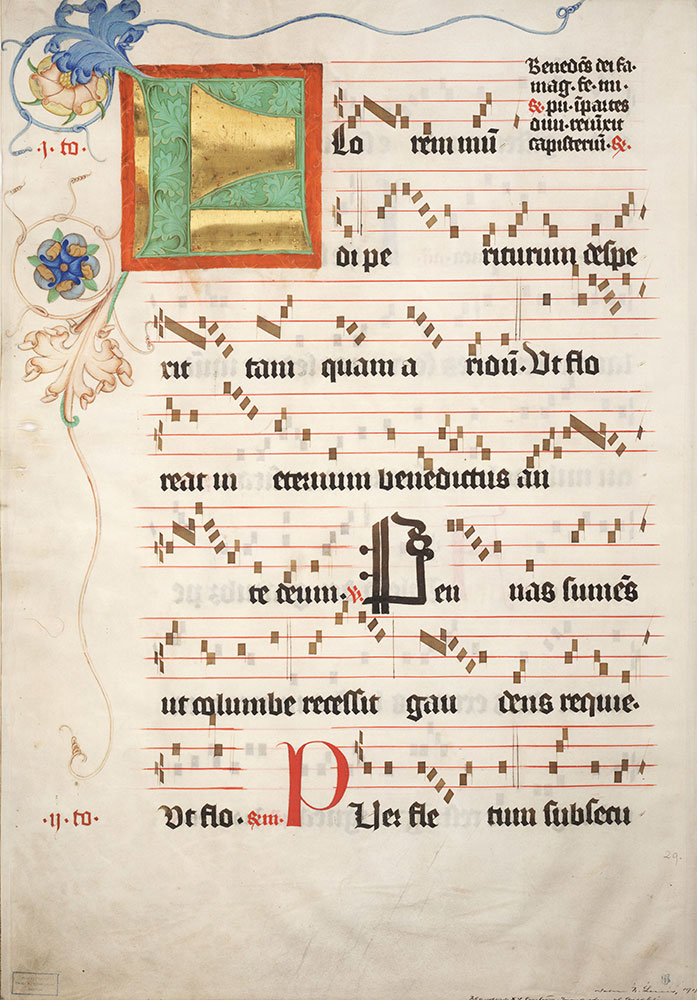 Benedc̄s dei fa·
mag. fe. mi·
℟. pii· īpartes
diui· reuīxit
capisteriū· ℟.
·j. to·
Flo rem mū
di pe riturum despe
xit tam quam a ridū· Ut flo
reat in eternum benedictus an
te deum· ℣. Pen nas sumēs
ut columbe recessit gau dens requie·
·ij· to· Ut flo· P Uer fle tum subsecu
29.